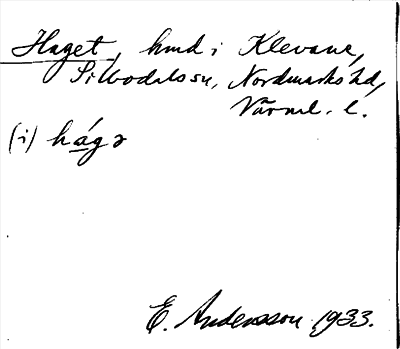 Haget, hmd i Klevane,
Silbodals sn, Nordmarks hd,
Värml. l.
(i) hágə
E. Andersson 1933.